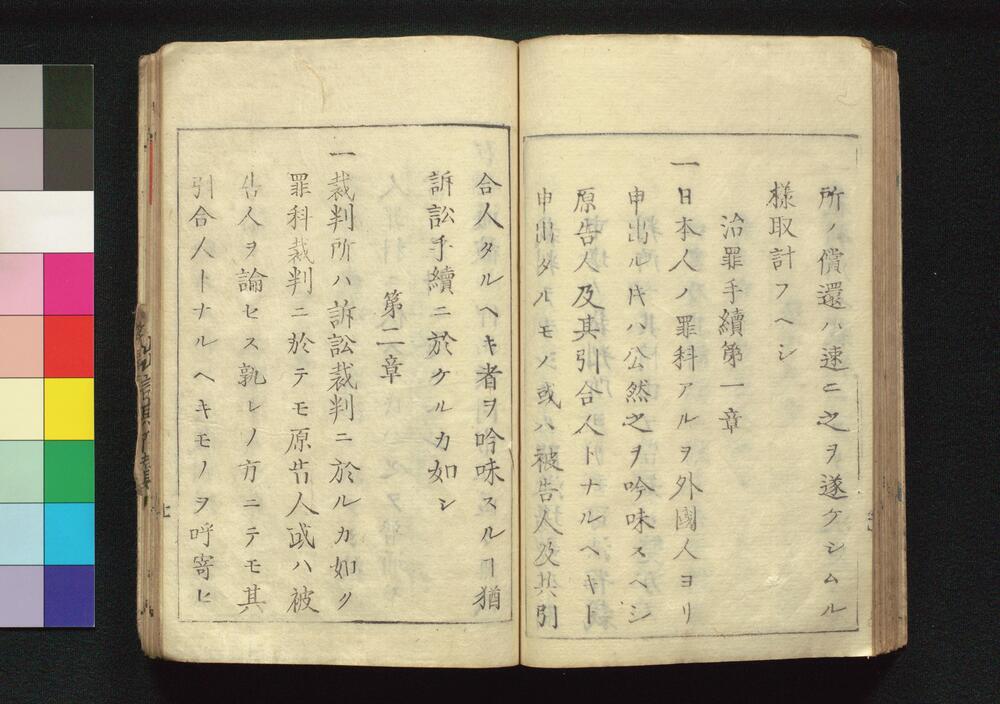 所ノ償還ハ速ニ之ヲ遂ケシムル
様取計フヘシ
治罪手續第一章
一日本人ノ罪科アルヲ外國人ヨリ
申出ル𪜈ハ公然之ヲ吟味スヘシ
原告人及其引合人トナルヘキト
申出タルモノ或ハ被告人及其引
合人タルヘキ者ヲ吟味スルヿ猶
訴訟手續ニ於ケルカ如シ
第二章
一裁判所ハ訴訟裁判ニ於ルカ如ク
罪科裁判ニ於テモ原告人或ハ被
告人ヲ論セス孰レノ方ニテモ其
引合人トナルヘキモノヲ呼寄ヒ